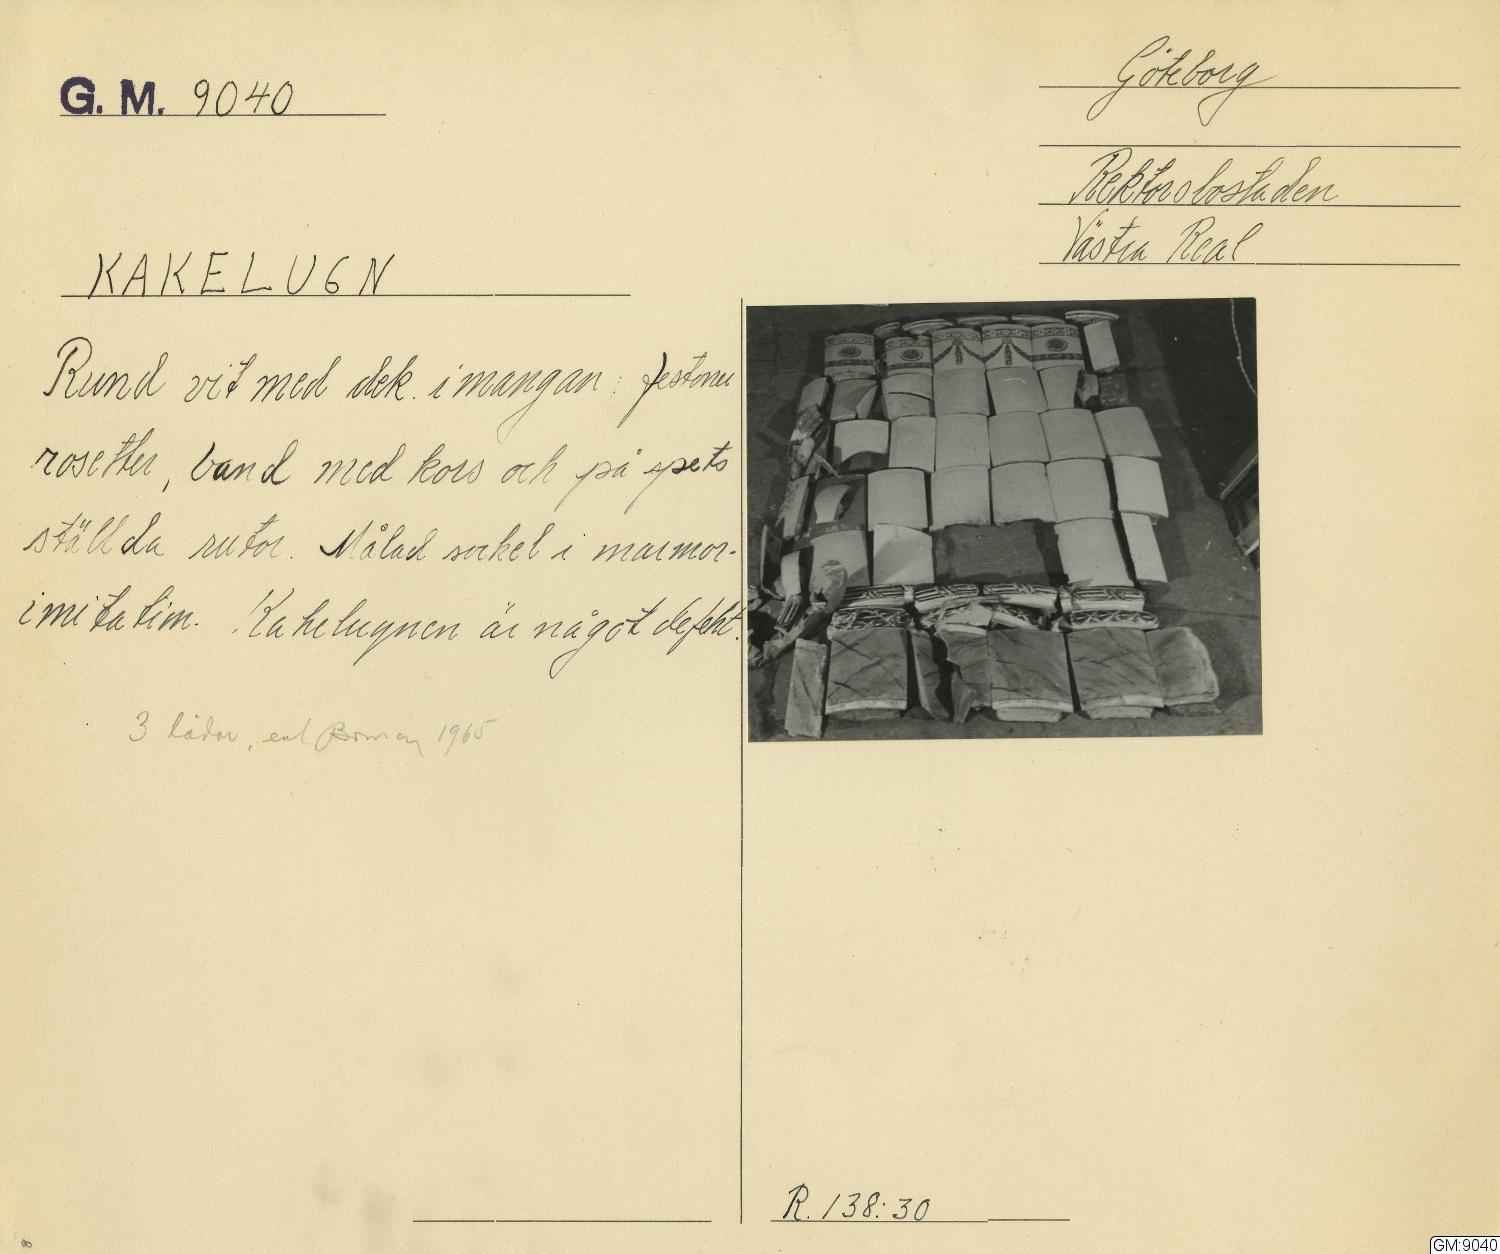 G. M. 9040
Göteborg
Rektorsbostaden
Västra Real
KAKELUGN
Rund vit med dek. i mangan: festoner
rosetter, band med kors och på spets
ställda rutor. Målad sockel i marmor-
imitation. Kakelugnen är något defekt.
3 lådor, enl 1965
R. 138:30
GM:9040